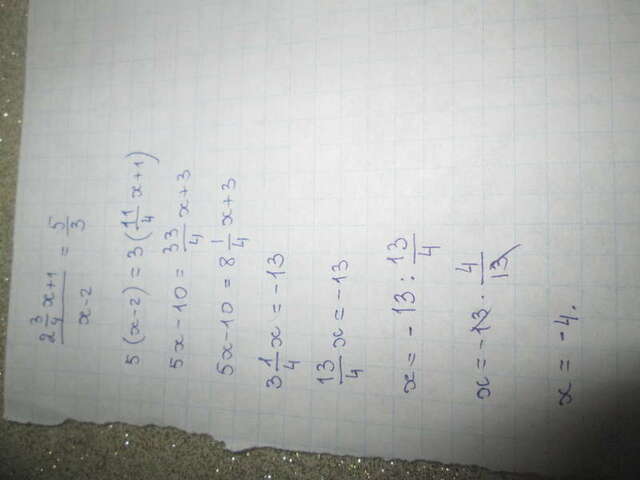 (2 3/4 x+1)/(x-2) = 5/3
5(x-2)=3(11/4 x+1)
5x-10=33/4 x+3
5x-10=8 1/4 x+3
3 1/4 x=-13
13/4 x=-13
x=-13:13/4
x=-13·4/13
x=-4.